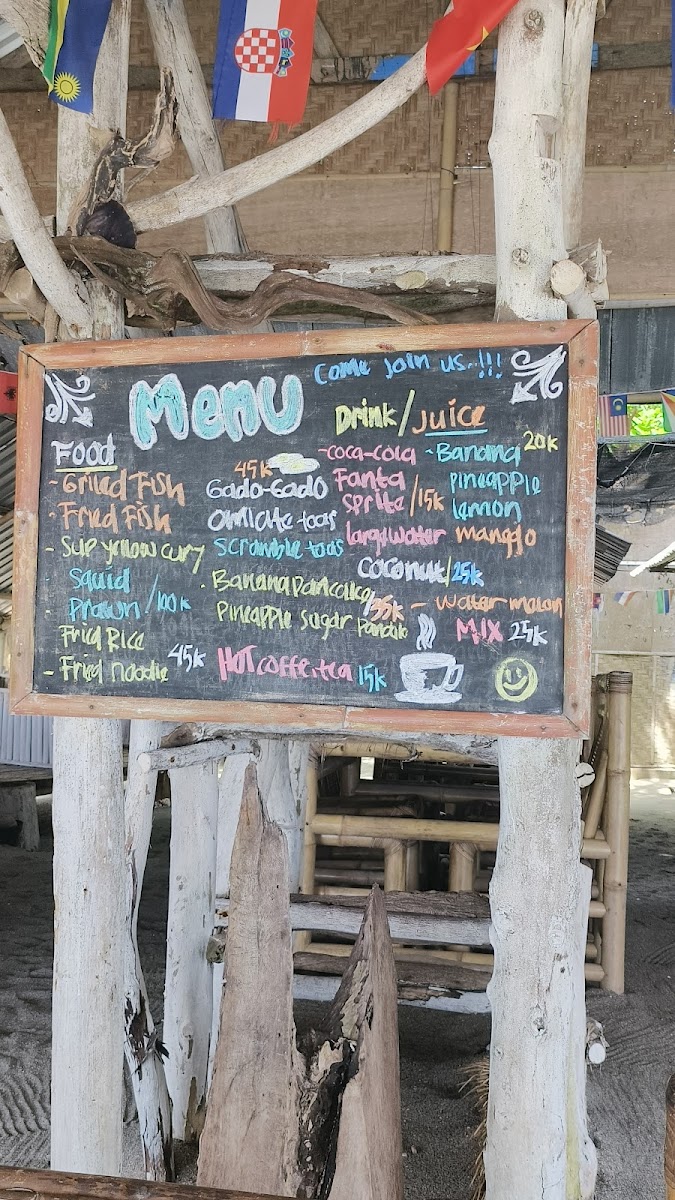 Menu
Come Join us..!!!
Food
- Griled Fish
- Fried Fish
- Sup yellow cury
Squid
Prawn /100k
Fried Rice
- Fried noodle 45k
45k
Gado-Gado
Omlate toas
Scramble toas
- Banana Pancake
Pineapple sugar Pancake 35k
Hot coffe,tea 15k
Drink/Juice
- Coca-cola
Fanta
Sprite /15k
large water
Coconut/25k
- Banana 20k
Pineapple
lemon
manggo
- Water melon
MIX 25k